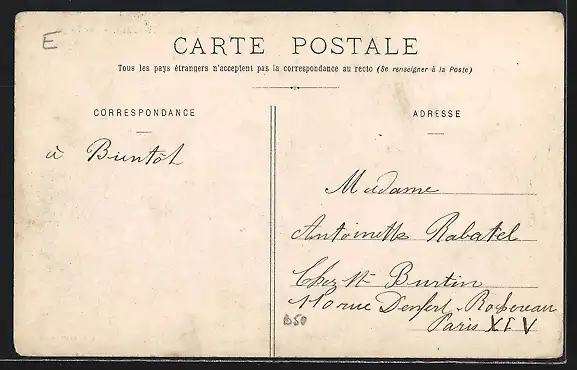 E
CARTE POSTALE
Tous les pays étrangers n'acceptent pas la correspondance au recto (Se renseigner à la Poste)
CORRESPONDANCE
à Bientôt
ADRESSE
Madame
Antoinette Rabatel
Chez Mr Burtin
110 rue Denfert-Rochereau
Paris XIV
B50